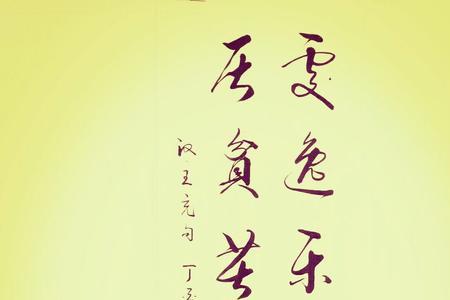 處逸乐
居貧苦
汉王充句 丁